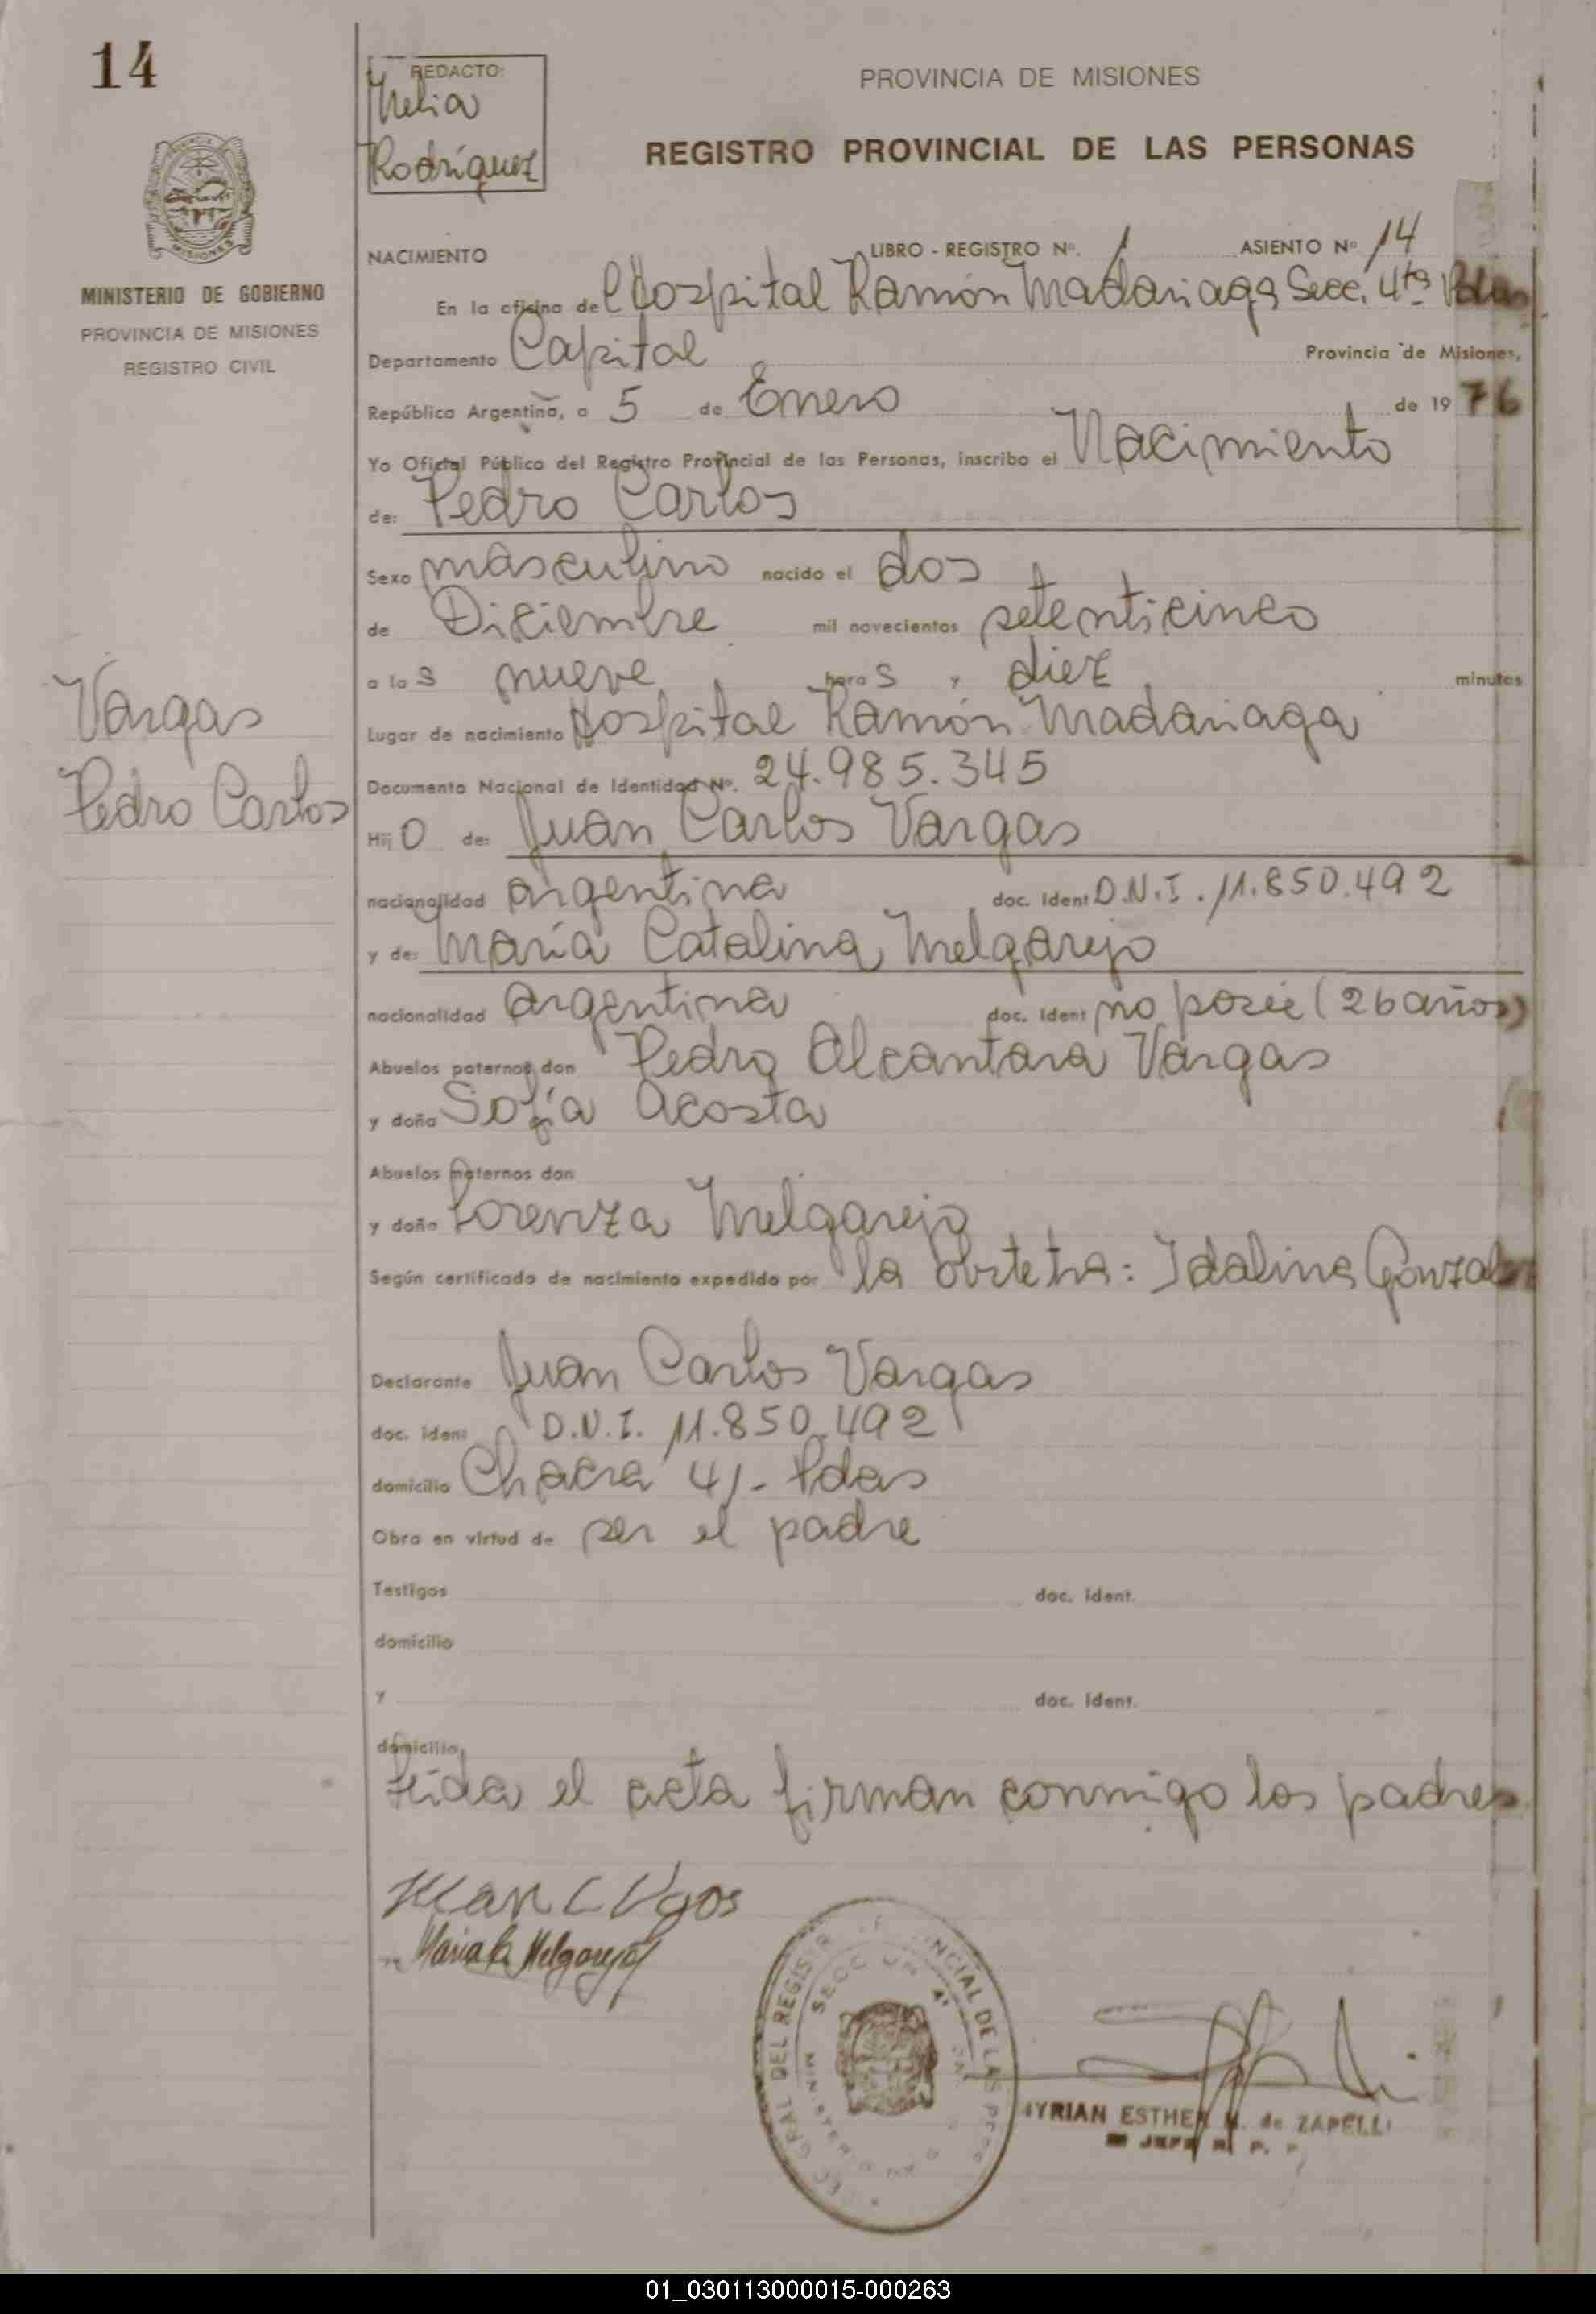 14
REDACTO:
Nelia
Rodríguez
PROVINCIA DE MISIONES
REGISTRO PROVINCIAL DE LAS PERSONAS
MINISTERIO DE GOBIERNO
PROVINCIA DE MISIONES
REGISTRO CIVIL
NACIMIENTO LIBRO - REGISTRO Nº. 1 ASIENTO Nº 14
En la oficina del Hospital Ramón Madariaga Secc. 4ta Pdas
Departamento Capital Provincia de Misiones,
República Argentina, a 5 de Enero de 1976
Yo Oficial Público del Registro Provincial de las Personas, inscribo el Nacimiento
de: Pedro Carlos
Sexo masculino nacido el dos
de Diciembre mil novecientos setenticinco
a las nueve horas y diez minutos
Vargas
Pedro Carlos
Lugar de nacimiento Hospital Ramón Madariaga
Documento Nacional de Identidad Nº. 24.985.345
Hijo de: Juan Carlos Vargas
nacionalidad argentina doc. Ident D.N.I. 11.850.492
y de: María Catalina Melgarejo
nacionalidad argentina doc. Ident no posee (26 años)
Abuelos paternos don Pedro Alcantara Vargas
y doña Sofía Acosta
Abuelos maternos don
y doña Lorenza Melgarejo
Según certificado de nacimiento expedido por la obstetra: Idalina Gonzalez
Declarante Juan Carlos Vargas
doc. ident D.N.I. 11.850.492
domicilio Chacra 41- Pdas
Obra en virtud de ser el padre
Testigos doc. Ident.
domicilio
y doc. Ident.
domicilio
Leida el acta firman conmigo los padres
Juan C Vgos
Maria C. Melgarejo
GRAL DEL REGIS NCIAL DE LAS PE
SECC 4ª
MINISTER
MYRIAN ESTHER M. de ZAPELLI
JEFE R. P. P.
01_030113000015-000263